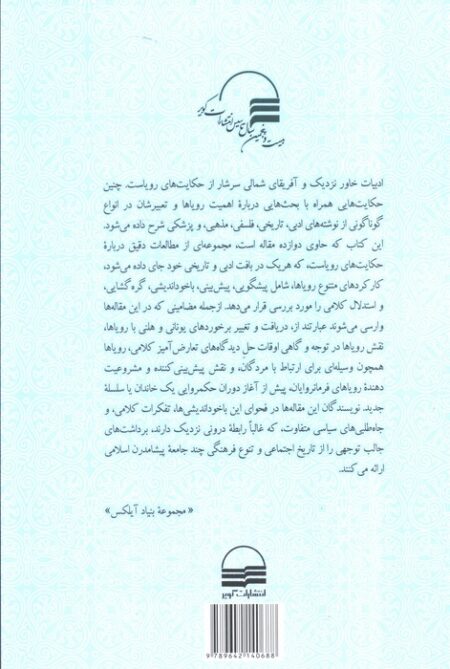 بیست و پنجمین سال تأسیس انتشارات کویر
ادبیات خاور نزدیک و آفریقای شمالی سرشار از حکایت‌های رویاست. چنین
حکایت‌هایی همراه با بحث‌هایی دربارهٔ اهمیت رویاها و تعبیرشان در انواع
گوناگونی از نوشته‌های ادبی، تاریخی، فلسفی، مذهبی، و پزشکی شرح داده می‌شود.
این کتاب که حاوی دوازده مقاله است، مجموعه‌ای از مطالعات دقیق دربارهٔ
حکایت‌های رویاست، که هریک در بافت ادبی و تاریخی خود جای داده می‌شود،
کارکردهای متنوع رویاها، شامل پیشگویی، پیش‌بینی، باخوداندیشی، گره‌گشایی،
و استدلال کلامی را مورد بررسی قرار می‌دهد. ازجمله مضامینی که در این مقاله‌ها
وارسی می‌شوند عبارتند از، دریافت و تغییر برخوردهای یونانی و هلنی با رویاها،
نقش رویاها در توجه و گاهی اوقات حل دیدگاه‌های تعارض‌آمیز کلامی، رویاها
همچون وسیله‌ای برای ارتباط با مردگان، و نقش پیش‌بینی‌کننده و مشروعیت
دهندهٔ رویاهای فرمانروایان، پیش از آغاز دوران حکمروایی یک خاندان یا سلسلهٔ
جدید. نویسندگان این مقاله‌ها در فحوای این باخوداندیشی‌ها، تفکرات کلامی، و
جاه‌طلبی‌های سیاسی متفاوت، که غالباً رابطهٔ درونی نزدیک دارند، برداشت‌های
جالب توجهی را از تاریخ اجتماعی و تنوع فرهنگی چند جامعهٔ پیشامدرن اسلامی
ارائه می‌کنند.
«مجموعهٔ بنیاد آیلکس»
انتشارات کویر
9 789642 140688